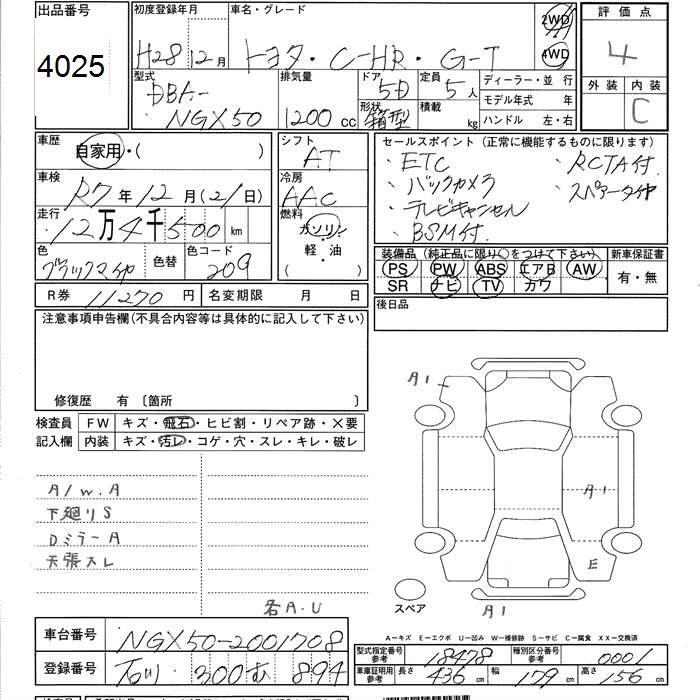 出品番号
4025
初度登録年月
H28 12月
車名・グレード
トヨタ・C-HR・G-T
2WD
4WD
評価点
4
外装 内装
C
型式
DBA-
NGX50
排気量
1200 cc
ドア
5D
形状
箱型
定員
5人
積載
kg
ディーラー・並行
モデル年式 年
ハンドル 左・右
車歴
自家用・( )
シフト
AT
車検
R7年12月(21日)
冷房
AAC
走行
12万4千500 km
燃料
ガソリン
軽・油
( )
色
色替
色コード
209
R券 11270 円
名変期限 月 日
セールスポイント(正常に機能するものに限ります)
・ETC
・バックカメラ
・テレビキャンセル
・BSM付
・RCTA付
装備品(純正品に限り○をつけて下さい)
PS PW ABS エアB AW
SR ナビ TV カワ
新車保証書
有・無
後日品
注意事項申告欄(不具合内容等は具体的に記入して下さい)
修復歴 有〔箇所 〕
検査員
記入欄
FW キズ・飛石・ヒビ割・リペア跡・×要
内装 キズ・汚レ・コゲ・穴・スレ・キレ・破レ
A/W.A
下廻りS
DミラーA
天張スレ
各A.U
A1
A1
E
スペア
A1
A－キズ E－エクボ U－凹み W－補修跡 S－サビ C－腐食 XX－交換済
車台番号 NGX50-2001708
登録番号 石川 300 894
型式指定番号 参考 18478
種別区分番号 参考 0001
車庫証明用 参考 長さ 436 cm 幅 179 cm 高さ 156 cm